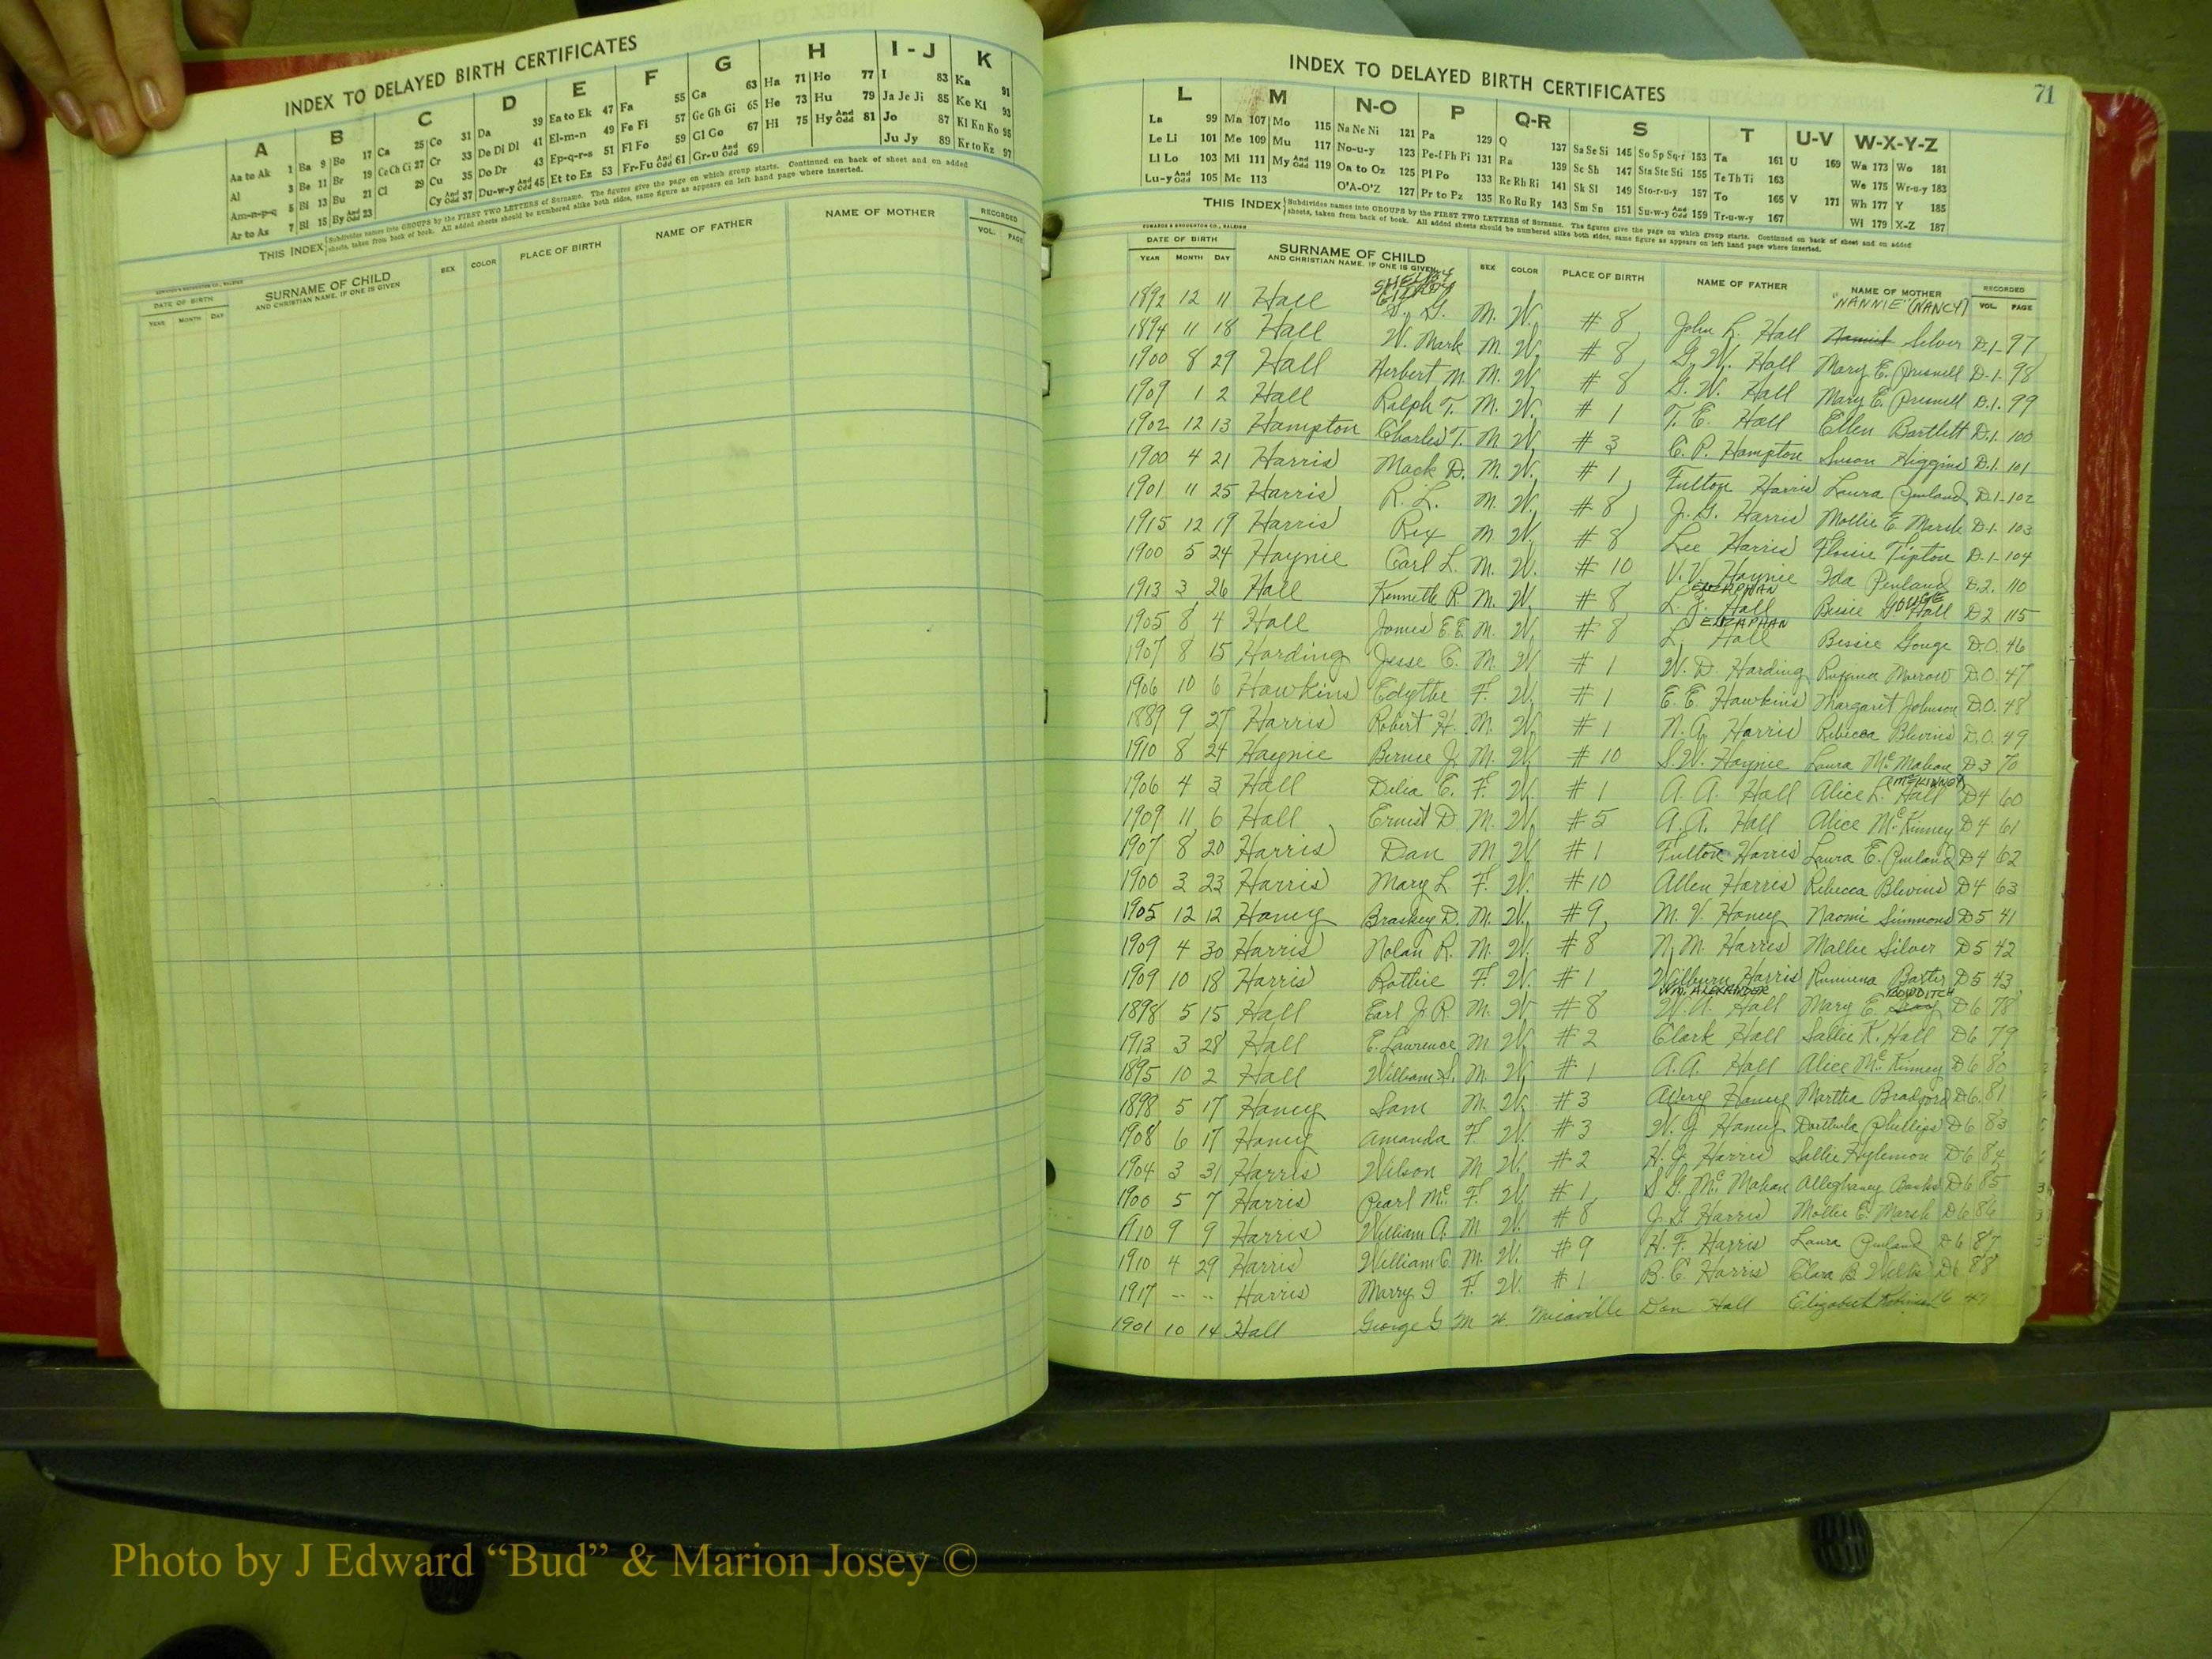 INDEX TO DELAYED BIRTH CERTIFICATES
A B C D E F G H I - J K
Aa to Ak 1 Ba 9 Bo 17 Ca 25 Co 31 Da 39 Ea to Ek 47 Fa 55 Ga 63 Ha 71 Ho 77 I 83 Ka 91
Al 3 Be 11 Br 19 Ce Ch Ci 27 Cr 33 De Di Dl 41 El-m-n 49 Fe Fi 57 Ge Gh Gi 65 He 73 Hu 79 Ja Je Ji 85 Ke Ki 93
Am-n-p-q 5 Bi 13 Bu 21 Cl 29 Cu 35 Do Dr 43 Ep-q-r-s 51 Fl Fo 59 Gl Go 67 Hi 75 Hy And Odd 81 Jo 87 Kl Kn Ko 95
Ar to Az 7 Bl 15 By And Odd 23 Cy And Odd 37 Du-w-y And Odd 45 Et to Ez 53 Fr-Fu And Odd 61 Gr-u And Odd 69 Ju Jy 89 Kr to Kz 97
THIS INDEX Subdivides names into GROUPS by the FIRST TWO LETTERS of Surname. The figures give the page on which group starts. Continued on back of sheet and on added
sheets, taken from back of book. All added sheets should be numbered alike both sides, same figure as appears on left hand page where inserted.
DATE OF BIRTH SURNAME OF CHILD SEX COLOR PLACE OF BIRTH NAME OF FATHER NAME OF MOTHER RECORDED
YEAR MONTH DAY AND CHRISTIAN NAME, IF ONE IS GIVEN VOL. PAGE
INDEX TO DELAYED BIRTH CERTIFICATES
71
L M N-O P Q-R S T U-V W-X-Y-Z
La 99 Ma 107 Mo 115 Na Ne Ni 121 Pa 129 Q 137 Sa Se Si 145 So Sp Sq-r 153 Ta 161 U 169 Wa 173 Wo 181
Le Li 101 Me 109 Mu 117 No-u-y 123 Pe-f Ph Pi 131 Ra 139 Sc Sh 147 Sta Ste Sti 155 Te Th Ti 163 We 175 Wr-u-y 183
Ll Lo 103 Mi 111 My And Odd 119 Oa to Oz 125 Pl Po 133 Re Rh Ri 141 Sk Sl 149 Sto-r-u-y 157 To 165 V 171 Wh 177 Y 185
Lu-y And Odd 105 Mc 113 O'A-O'Z 127 Pr to Pz 135 Ro Ru Ry 143 Sm Sn 151 Su-w-y And Odd 159 Tr-u-w-y 167 Wi 179 X-Z 187
THIS INDEX Subdivides names into GROUPS by the FIRST TWO LETTERS of Surname. The figures give the page on which group starts. Continued on back of sheet and on added
sheets, taken from back of book. All added sheets should be numbered alike both sides, same figure as appears on left hand page where inserted.
EDWARDS & BROUGHTON CO., RALEIGH
DATE OF BIRTH SURNAME OF CHILD SEX COLOR PLACE OF BIRTH NAME OF FATHER NAME OF MOTHER RECORDED
YEAR MONTH DAY AND CHRISTIAN NAME, IF ONE IS GIVEN VOL. PAGE
"NANNIE" (NANCY)
1892 12 11 Hall S. G. M. W. #8 John L. Hall Silver D.1-97
1894 11 18 Hall W. Mark M. W. #8 G. W. Hall Mary E. Presnell D.1-98
1900 8 29 Hall Herbert M. M. W. #8 G. W. Hall Mary E. Presnell D.1.99
1909 1 2 Hall Ralph T. M. W. #1 T. E. Hall Ellen Bartlett D.1.100
1902 12 13 Hampton Charles T. M. W. #3 C. P. Hampton Susan Higgins D.1.101
1900 4 21 Harris Mack D. M. W. #1 Fulton Harris Laura Penland D.1-102
1901 11 25 Harris R. L. M. W. #8 J. G. Harris Mollie E. Marsh D.1.103
1915 12 19 Harris Rex M W. #8 Lee Harris Flossie Tipton D.1-104
1900 5 24 Haynie Carl L. M. W. #10 V. V. Haynie Ida Penland D.2. 110
1913 3 26 Hall Kenneth R. M. W. #8 L. Z. Hall Bessie GOUGE Hall D2 115
ELZAPHAN
1905 8 4 Hall James E.E. M. W. #8 L. Hall Bessie Gouge D.O. 46
1907 8 15 Harding Jesse C. M. W #1 W. D. Harding Morrow D.O. 47
1906 10 6 Hawkins Edythe F. W. #1 E. E. Hawkins Margaret Johnson D.O. 48
1889 9 27 Harris Robert H. M. W. #1 N. A. Harris Rebecca Blevins D.O. 49
1910 8 24 Haynie Bernie J. M. W. #10 S. W. Haynie Laura McMahan D3 70
(McKINNEY)
1906 4 3 Hall Delia E. F. W. #1 A. A. Hall Alice L. Hall D4 60
1909 11 6 Hall Ernest D. M. W. #5 A. A. Hall Alice McKinney D4 61
1907 8 20 Harris Dan M W. #1 Fulton Harris Laura E. Penland D4 62
1900 3 23 Harris Mary L F. W. #10 Allen Harris Rebecca Blevins D4 63
1905 12 12 Haney Braskey D. M. W. #9 M. V. Haney Naomi Simmons D5 41
1909 4 30 Harris Nolan R. M. W. #8 N. M. Harris Mallie Silver D5 42
1909 10 18 Harris F. W. #1 Wilburn Harris Baxter D5 43
WM. ALEXANDER BOWDITCH
1898 5 15 Hall Earl J. R. M. W #8 W. A. Hall Mary E. D6 78
1913 3 28 Hall E. Lawrence M W. #2 Clark Hall Sallie K. Hall D6 79
1895 10 2 Hall William S. M. W. #1 A. A. Hall Alice McKinney D6 80
1898 5 17 Haney Sam M. W. #3 Avery Haney Martha Bradford D6. 81
1908 6 17 Haney Amanda F. W. #3 Haney Phillips D6 83
1904 3 31 Harris Wilson M W. #2 Harris Sallie Hylemon D6 84
1900 5 7 Harris Pearl Mc. F. W. #1 S. G. McMahan Alleghaney Banks D6 85
1910 9 9 Harris William A. M W. #8 J. G. Harris Mollie E. Marsh D6 86
1910 4 29 Harris William C. M. W. #9 H. F. Harris Laura Penland D6 87
1917 -- -- Harris Marry I F. W. #1 B. C. Harris Clara B. Willis D6 88
1901 10 14 Hall George G M W. Micaville Dan Hall Elizabeth Robinson
Photo by J Edward “Bud” & Marion Josey ©